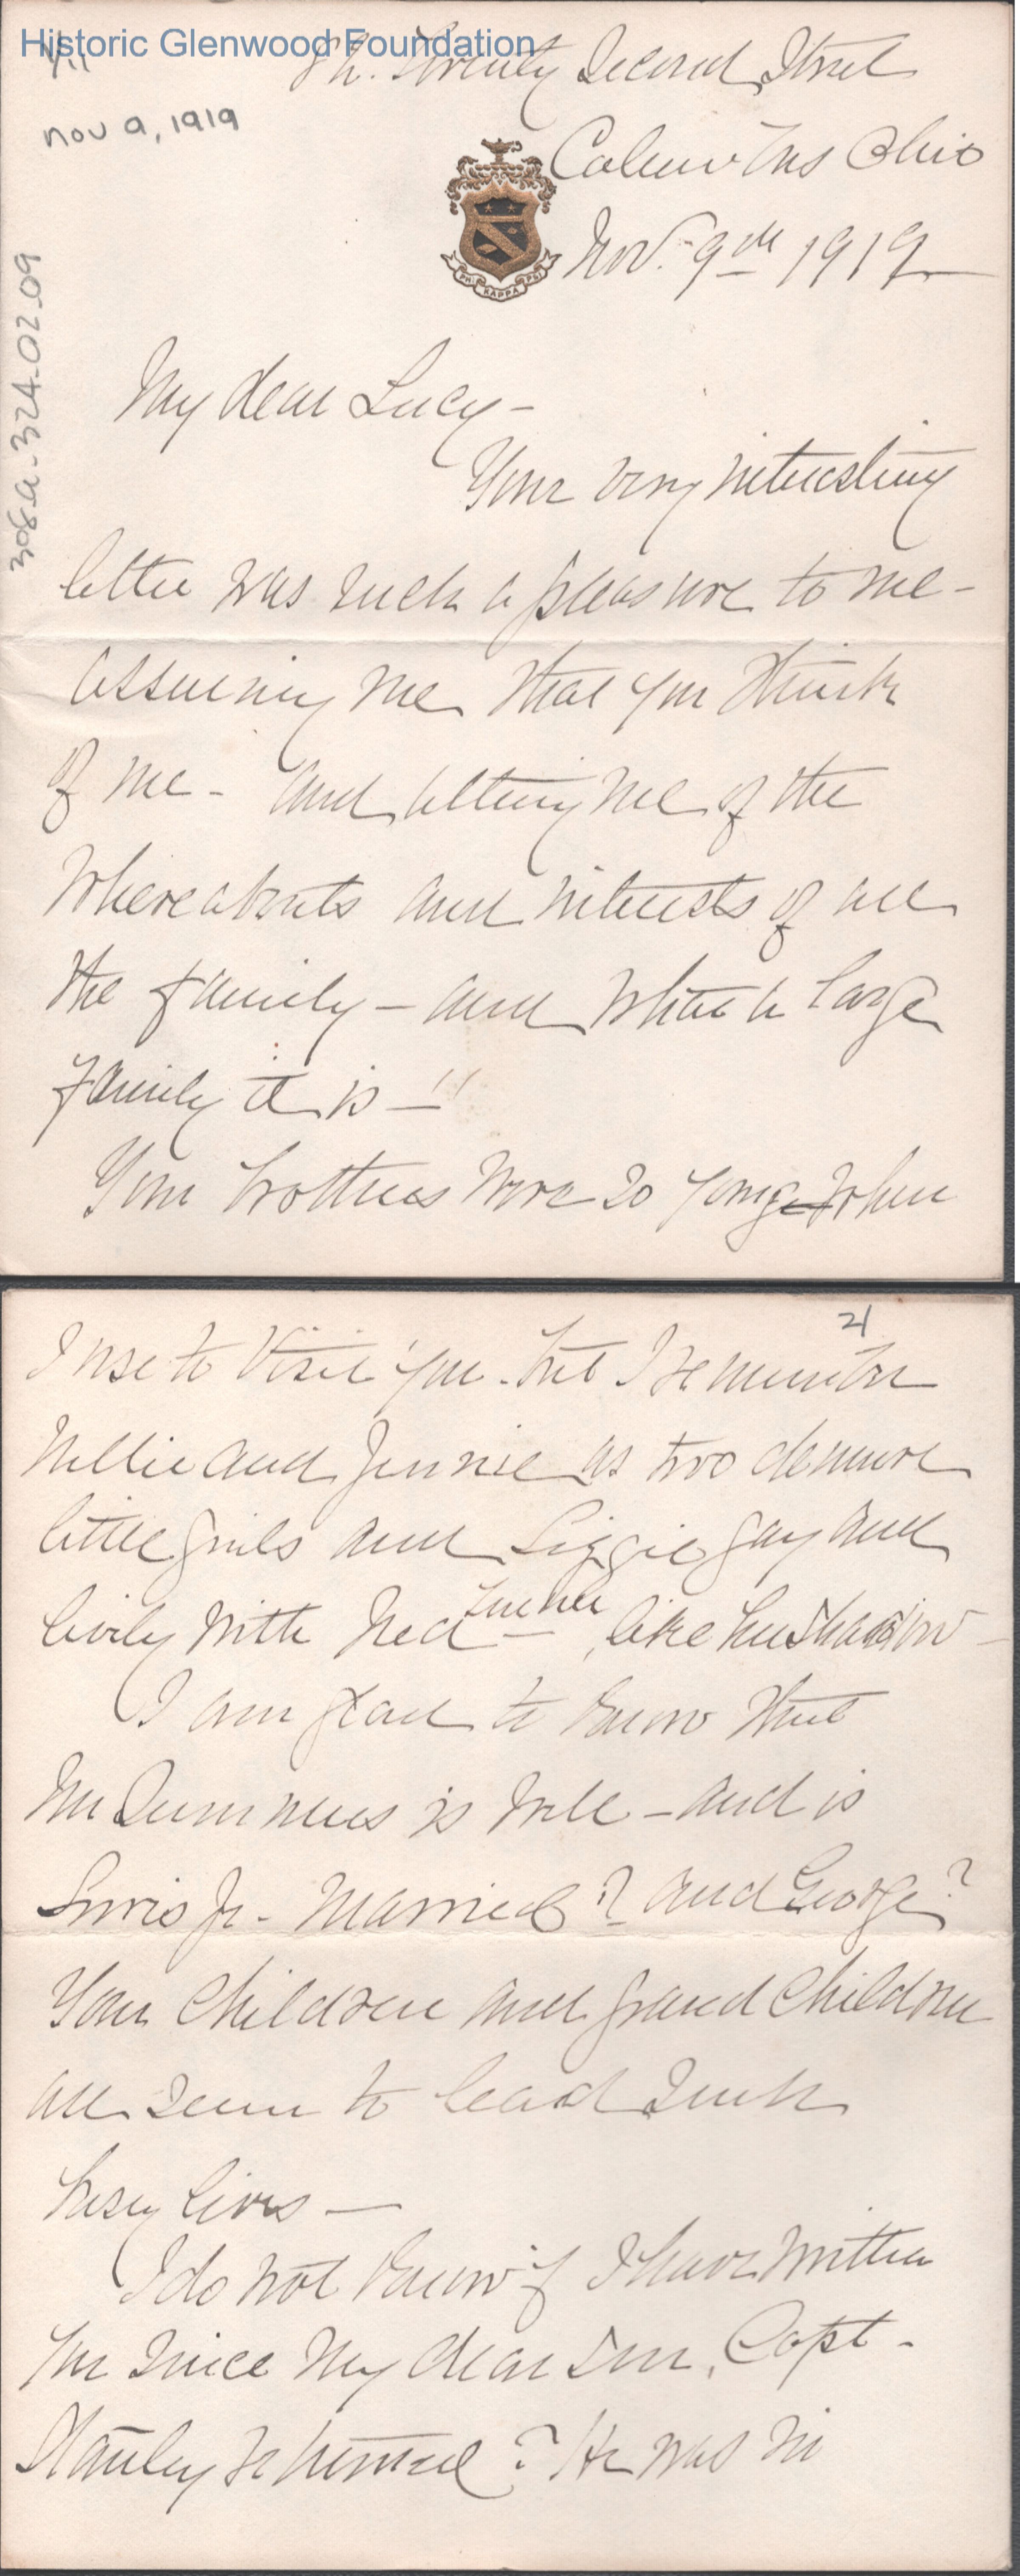 Historic Glenwood Foundation
Twenty Second Street
nov 9, 1919
Columbus Ohio
PHI KAPPA PSI
Nov. 9th 1919
308.a.324.02.09
My dear Lucy -
Your very interesting
letter was such a pleasure to me -
assuring me that you think
of me - and letting me of the
whereabouts and interests of all
the family - and what a large
family it is - !!
Your brothers were so young - when
2/
I use to visit you - but I remember
Nellie and Jennie as two demure
little girls and Lizzie gay and
lively with Ned Turner, like her shadow -
I am glad to know that
Mr Dummus is well - and is
Lewis Jr - Married? and George?
Your children and grand children
all seem to lead such
busy lives -
I do not know if I have written
you since my dear son, Capt -
Stanley returned? He was in